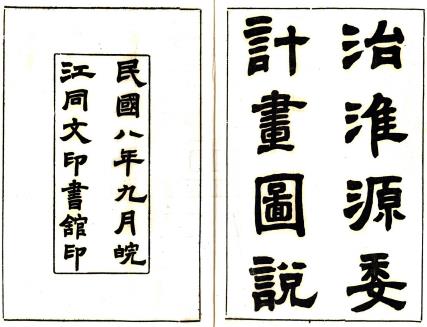 治淮源委
計畫圖說
民國八年九月皖
江同文印書館印